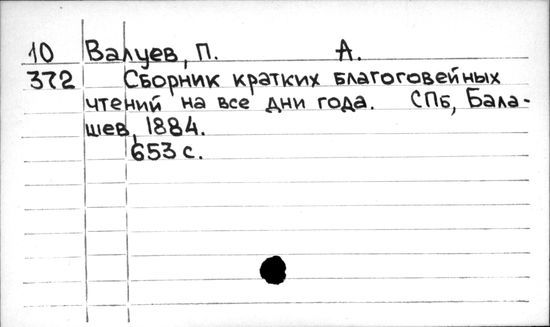 10 Валуев, П. А.
372 Сборник кратких благоговейных
чтений на все дни года. СПб, Бала-
шев, 1884.
653 с.